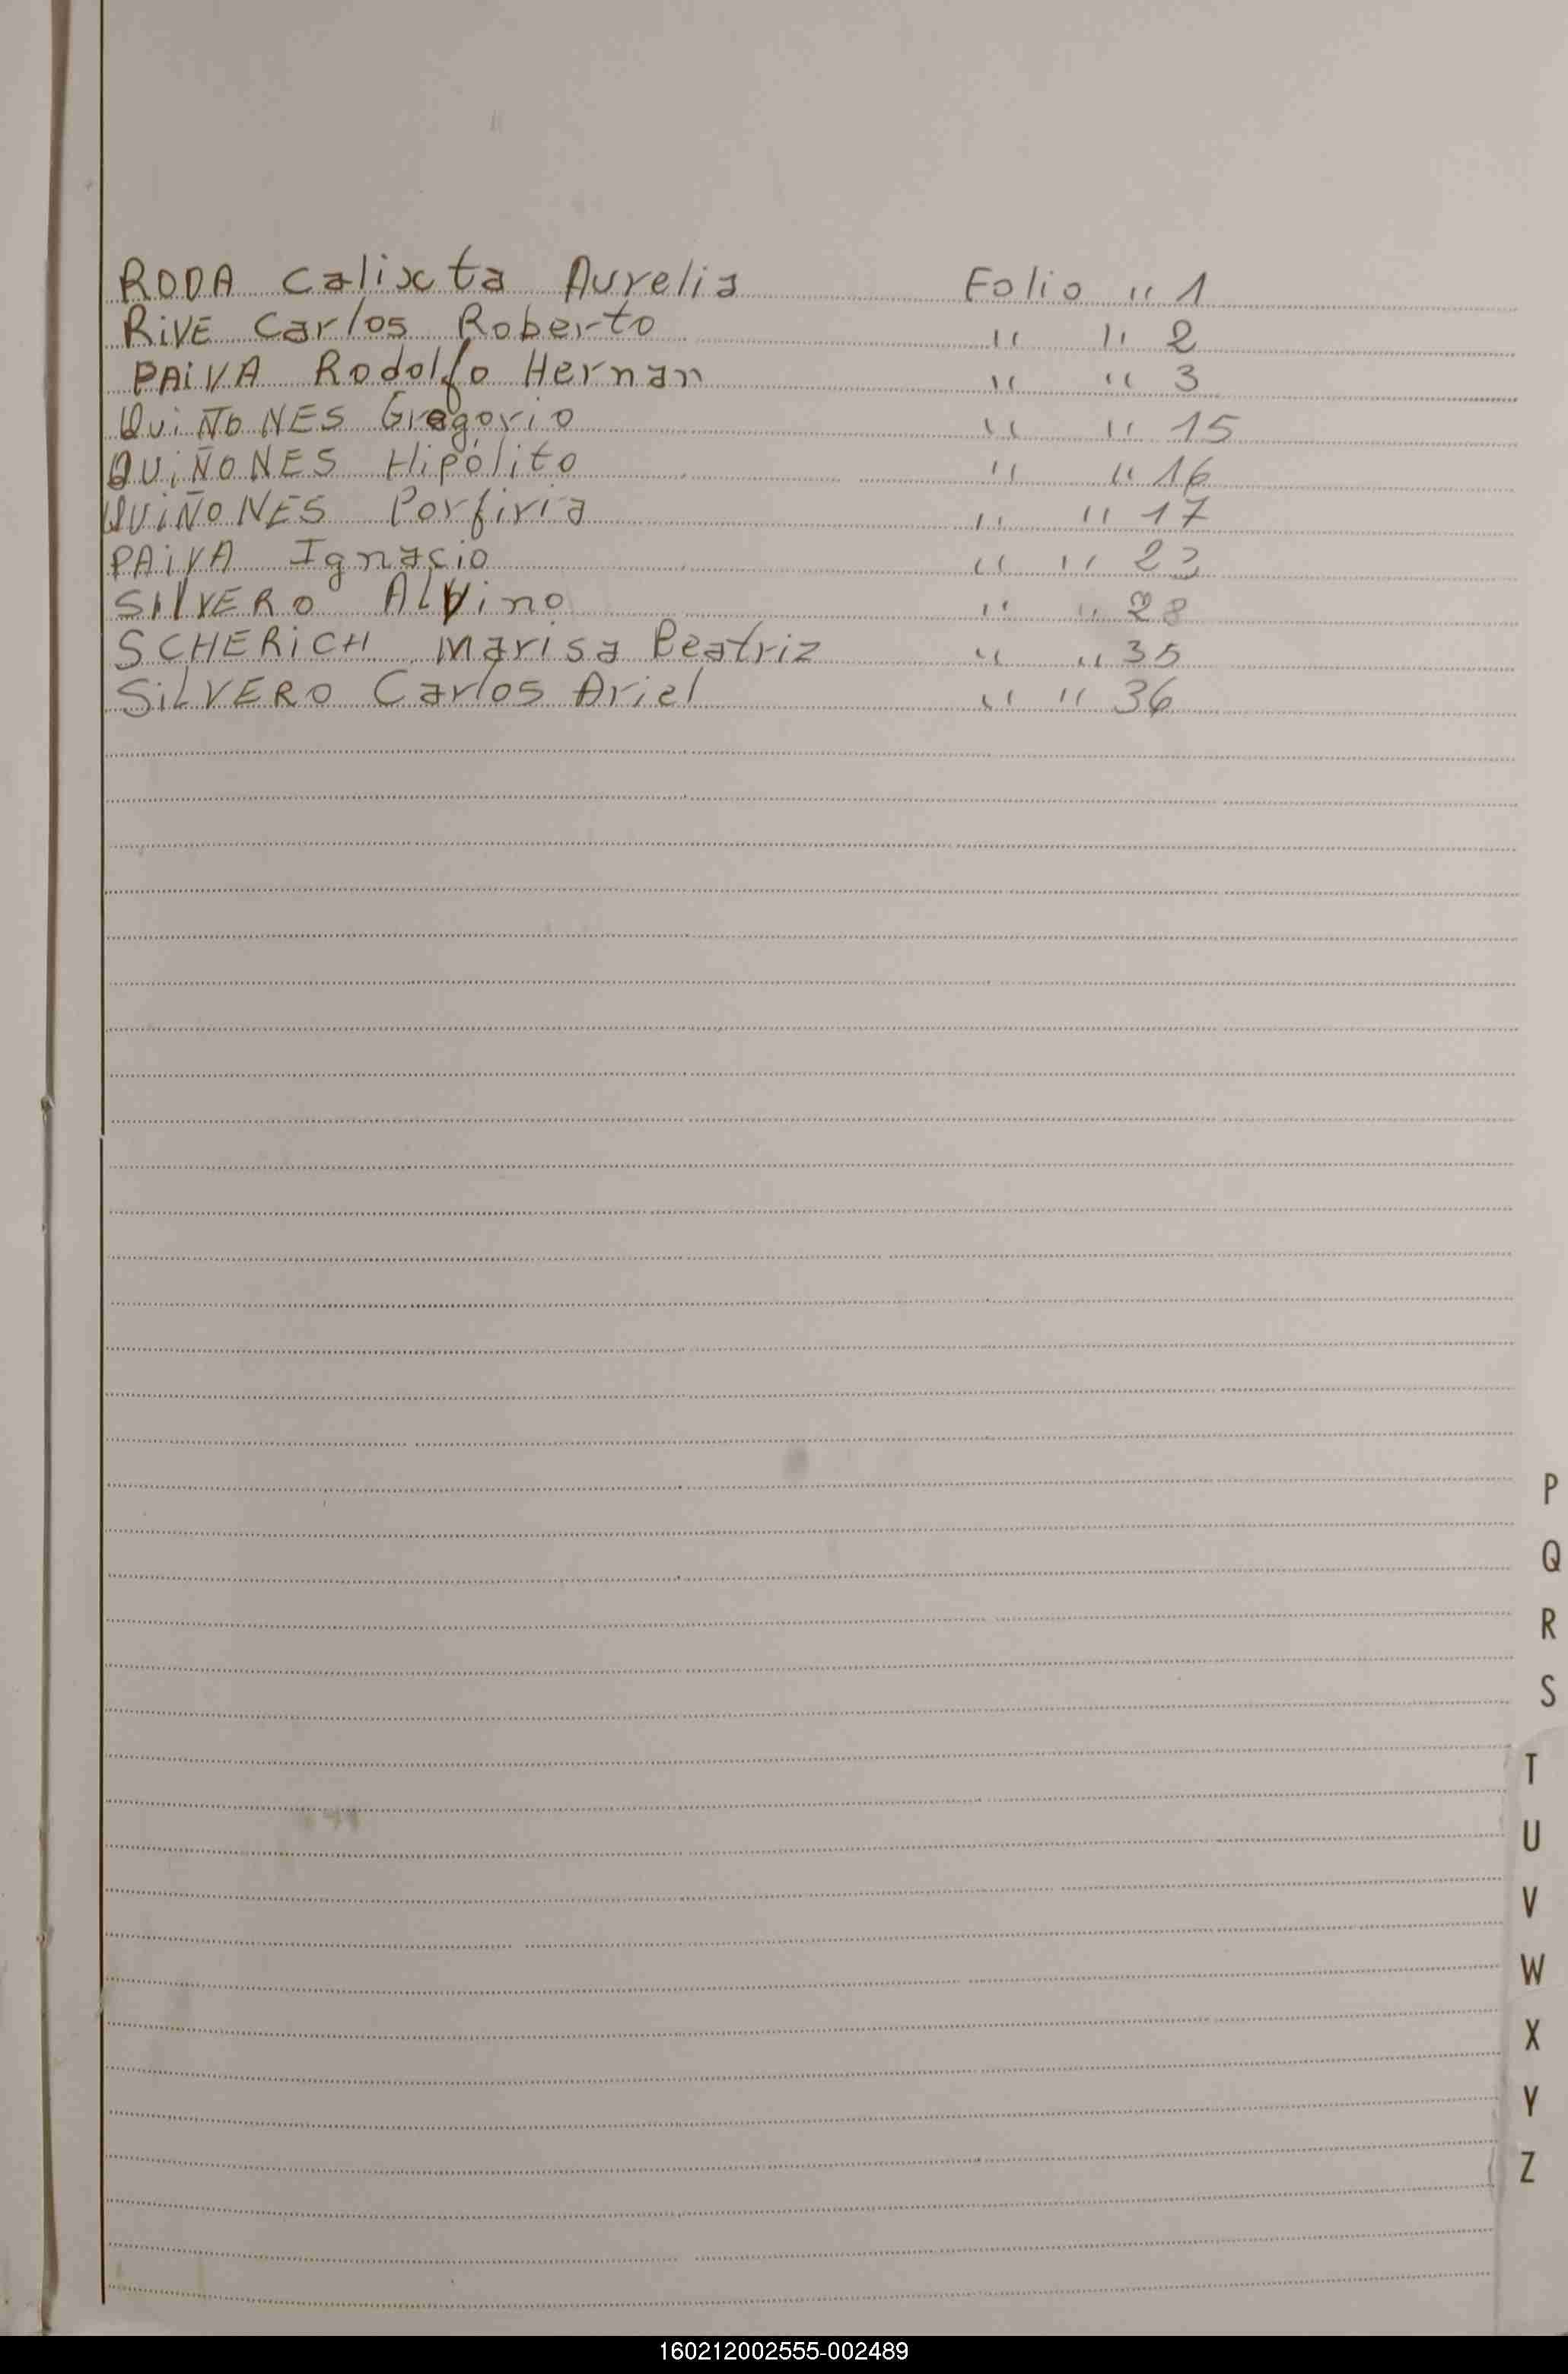 RODA Calixta Aurelia Folio " 1
RiVE Carlos Roberto " " 2
PAiVA Rodolfo Hernan " " 3
QuiÑONES Gregorio " " 15
QUiÑONES Hipólito " " 16
QUiÑONES Porfiria " " 17
PAiVA Ignacio " " 23
SilVERO ALVino " " 28
SCHERiCH Marisa Beatriz " " 35
SiLVERO Carlos Ariel " " 36
P
Q
R
S
T
U
V
W
X
Y
Z
160212002555-002489